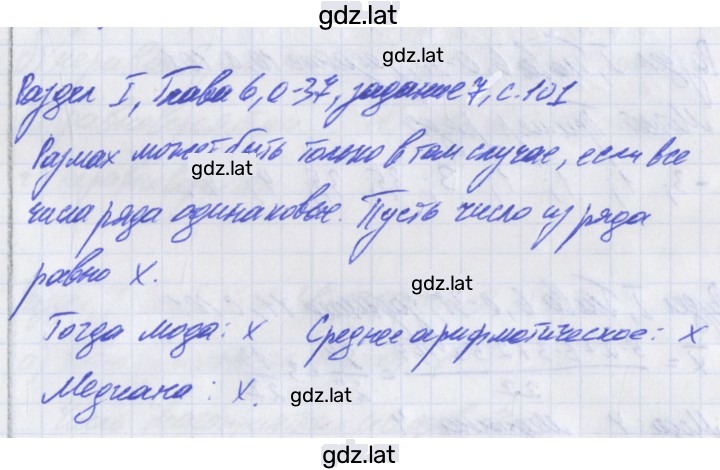 gdz.lat
Раздел I, Глава 6, О-37, задание 7, с.101
Размах может быть только в том случае, если все
gdz.lat
числа ряда одинаковые. Пусть число из ряда
равно x.
gdz.lat
Тогда мода: x Среднее арифмотическое: x
Медиана: x.
gdz.lat
gdz.lat